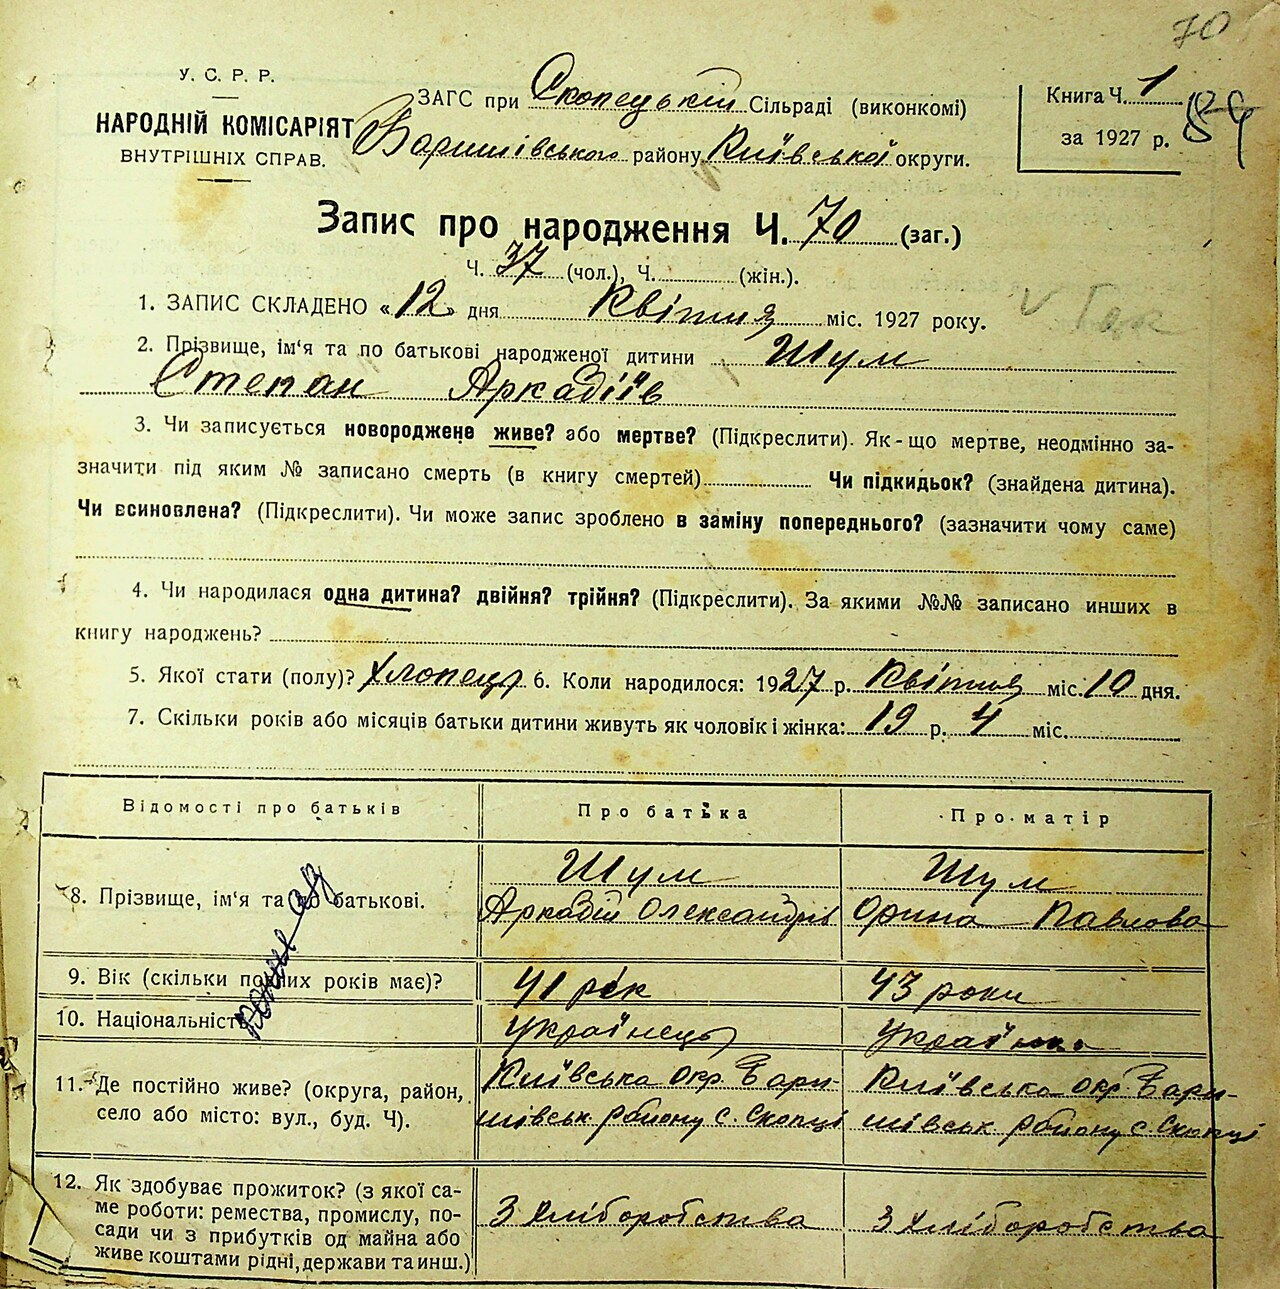 70
У. С. Р. Р.
НАРОДНІЙ КОМІСАРІЯТ
ВНУТРІШНІХ СПРАВ.
ЗАГС при Скопецькій Сільраді (виконкомі)
Баришівського району Київської округи.
Книга Ч. 1
за 1927 р.
Запис про народження Ч. 70 (заг.)
Ч. 37 (чол.), Ч. (жін.).
1. ЗАПИС СКЛАДЕНО «12» дня Квітня міс. 1927 року.
2. Прізвище, ім'я та по батькові народженої дитини Шум
Степан Аркадіїв
3. Чи записується новороджене живе? або мертве? (Підкреслити). Як-що мертве, неодмінно за-
значити під яким № записано смерть (в книгу смертей) Чи підкидьок? (знайдена дитина).
Чи всиновлена? (Підкреслити). Чи може запис зроблено в заміну попереднього? (зазначити чому саме)
4. Чи народилася одна дитина? двійня? трійня? (Підкреслити). За якими №№ записано инших в
книгу народжень?
5. Якої стати (полу)? Хлопець 6. Коли народилося: 1927 р. Квітня міс. 10 дня.
7. Скільки років або місяців батьки дитини живуть як чоловік і жінка: 19 р. 4 міс.
Відомості про батьків Про батька Про матір
8. Прізвище, ім'я та батькові. Шум Шум
Аркадій Олександрів Орина Павлова
9. Вік (скільки повних років має)? 41 рік 43 роки
10. Національність Українець Українка
11. Де постійно живе? (округа, район, Київська окр. Бари- Київська окр. Бари-
село або місто: вул., буд. Ч). шівськ. району с. Скопці шівськ району с. Скопці
12. Як здобуває прожиток? (з якої са-
ме роботи: ремества, промислу, по- З хліборобства З хліборобства
сади чи з прибутків од майна або
живе коштами рідні, держави та инш.)